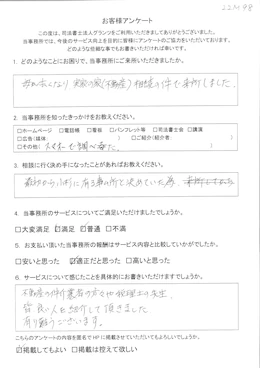 22M98
お客様アンケート
この度は、司法書士法人グランツをご利用いただきましてありがとうございました。
当事務所では、今後のサービス向上を目的に皆様にアンケートのご協力をいただいております。
どのような些細な事でもお書きいただければ幸いです。
1. どのようなことにお困りで、当事務所にご来所いただきましたか。
母が亡くなり 実家の家(不動産)相続の件で来所しました。
2. 当事務所を知ったきっかけをお教えください。
□ホームページ □電話帳 □看板 □パンフレット等 □司法書士会 □講演
□広告(媒体: ) □ご紹介(紹介者: )
☑その他( スマホで調べました。 )
3. 相談に行く決め手になったことがあればお教えください。
最初から川村にある事ム所と決めていた為、
4. 当事務所のサービスについてご満足いただけましたでしょうか。
□大変満足 ☑満足 □普通 □不満
5. お支払い頂いた当事務所の報酬はサービス内容と比較していかがでしたか。
□安いと思った ☑適正だと思った □高いと思った
6. サービスについて感じたことを具体的にお書きいただけますでしょうか。
不動産の仲介業者の方々や税理士の先生、
皆良い人を紹介して頂きました。
有り難うございます。
こちらのアンケートの内容を匿名でHPに掲載させていただいてもよろしいでしょうか。
☑掲載してもよい □掲載は控えて欲しい